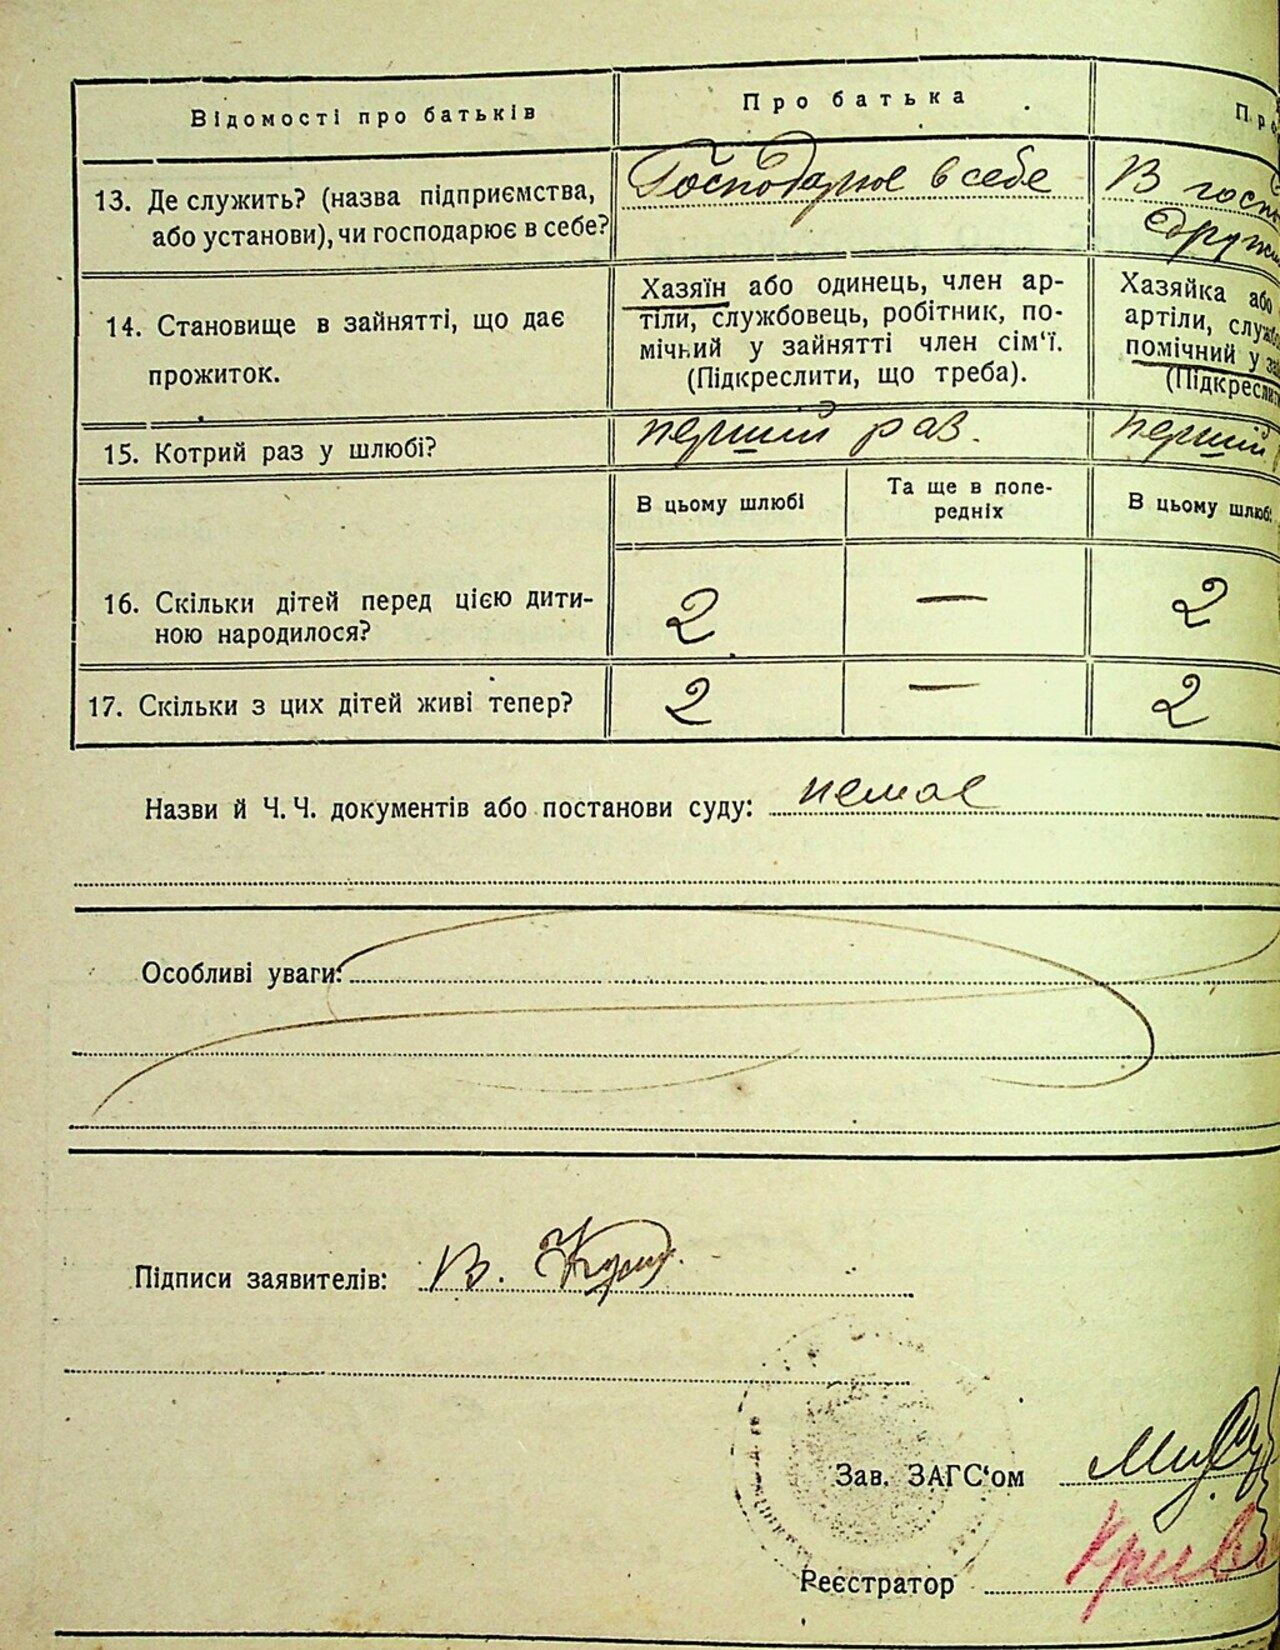 Відомості про батьків
Про батька
13. Де служить? (назва підприємства,
або установи), чи господарює в себе?
Господарює в себе
В госп
Друж
14. Становище в зайнятті, що дає
прожиток.
Хазяїн або одинець, член ар-
тіли, службовець, робітник, по-
мічний у зайнятті член сім‘ї.
(Підкреслити, що треба).
Хазяйка або
артіли, служб
помічний у за
(Підкреслит
15. Котрий раз у шлюбі?
перший раз.
перший
В цьому шлюбі
Та ще в попе-
редніх
В цьому шлюбі
16. Скільки дітей перед цією дити-
ною народилося?
2
—
2
17. Скільки з цих дітей живі тепер?
2
—
2
Назви й Ч. Ч. документів або постанови суду: немає
Особливі уваги:
Підписи заявителів: В.
Зав. ЗАГС‘ом
Реєстратор